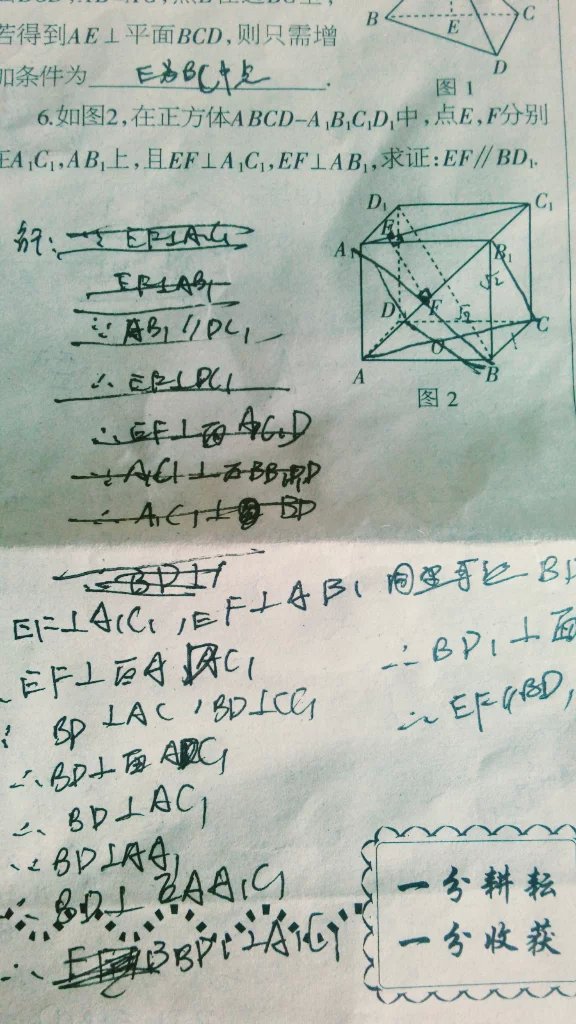 若得到AE⊥平面BCD,则只需增
加条件为 E为BC中点.
B
C
E
D
图1
6.如图2,在正方体ABCD-A₁B₁C₁D₁中,点E,F分别
在A₁C₁,AB₁上,且EF⊥A₁C₁,EF⊥AB₁,求证:EF∥BD₁.
∵ EF⊥A₁C₁
EF⊥AB₁
∵ AB₁∥DC₁
∴ EF⊥DC₁
∴ EF⊥面A₁C₁D
∴ A₁C₁⊥BD
D₁
C₁
E
A₁
B₁
√2
F
√2
D
C
O
A
B
图2
EF⊥A₁C₁,EF⊥AB₁ 同理可证
EF⊥面A
BD⊥AC,BD⊥CC₁
∴BD⊥面
∴ BD⊥AC₁
∵ BD⊥AA₁
∴ BD⊥面AA₁C₁
∴ BD₁⊥A₁C₁
∴ BD₁⊥面
∴ EF∥BD₁
一分耕耘
一分收获